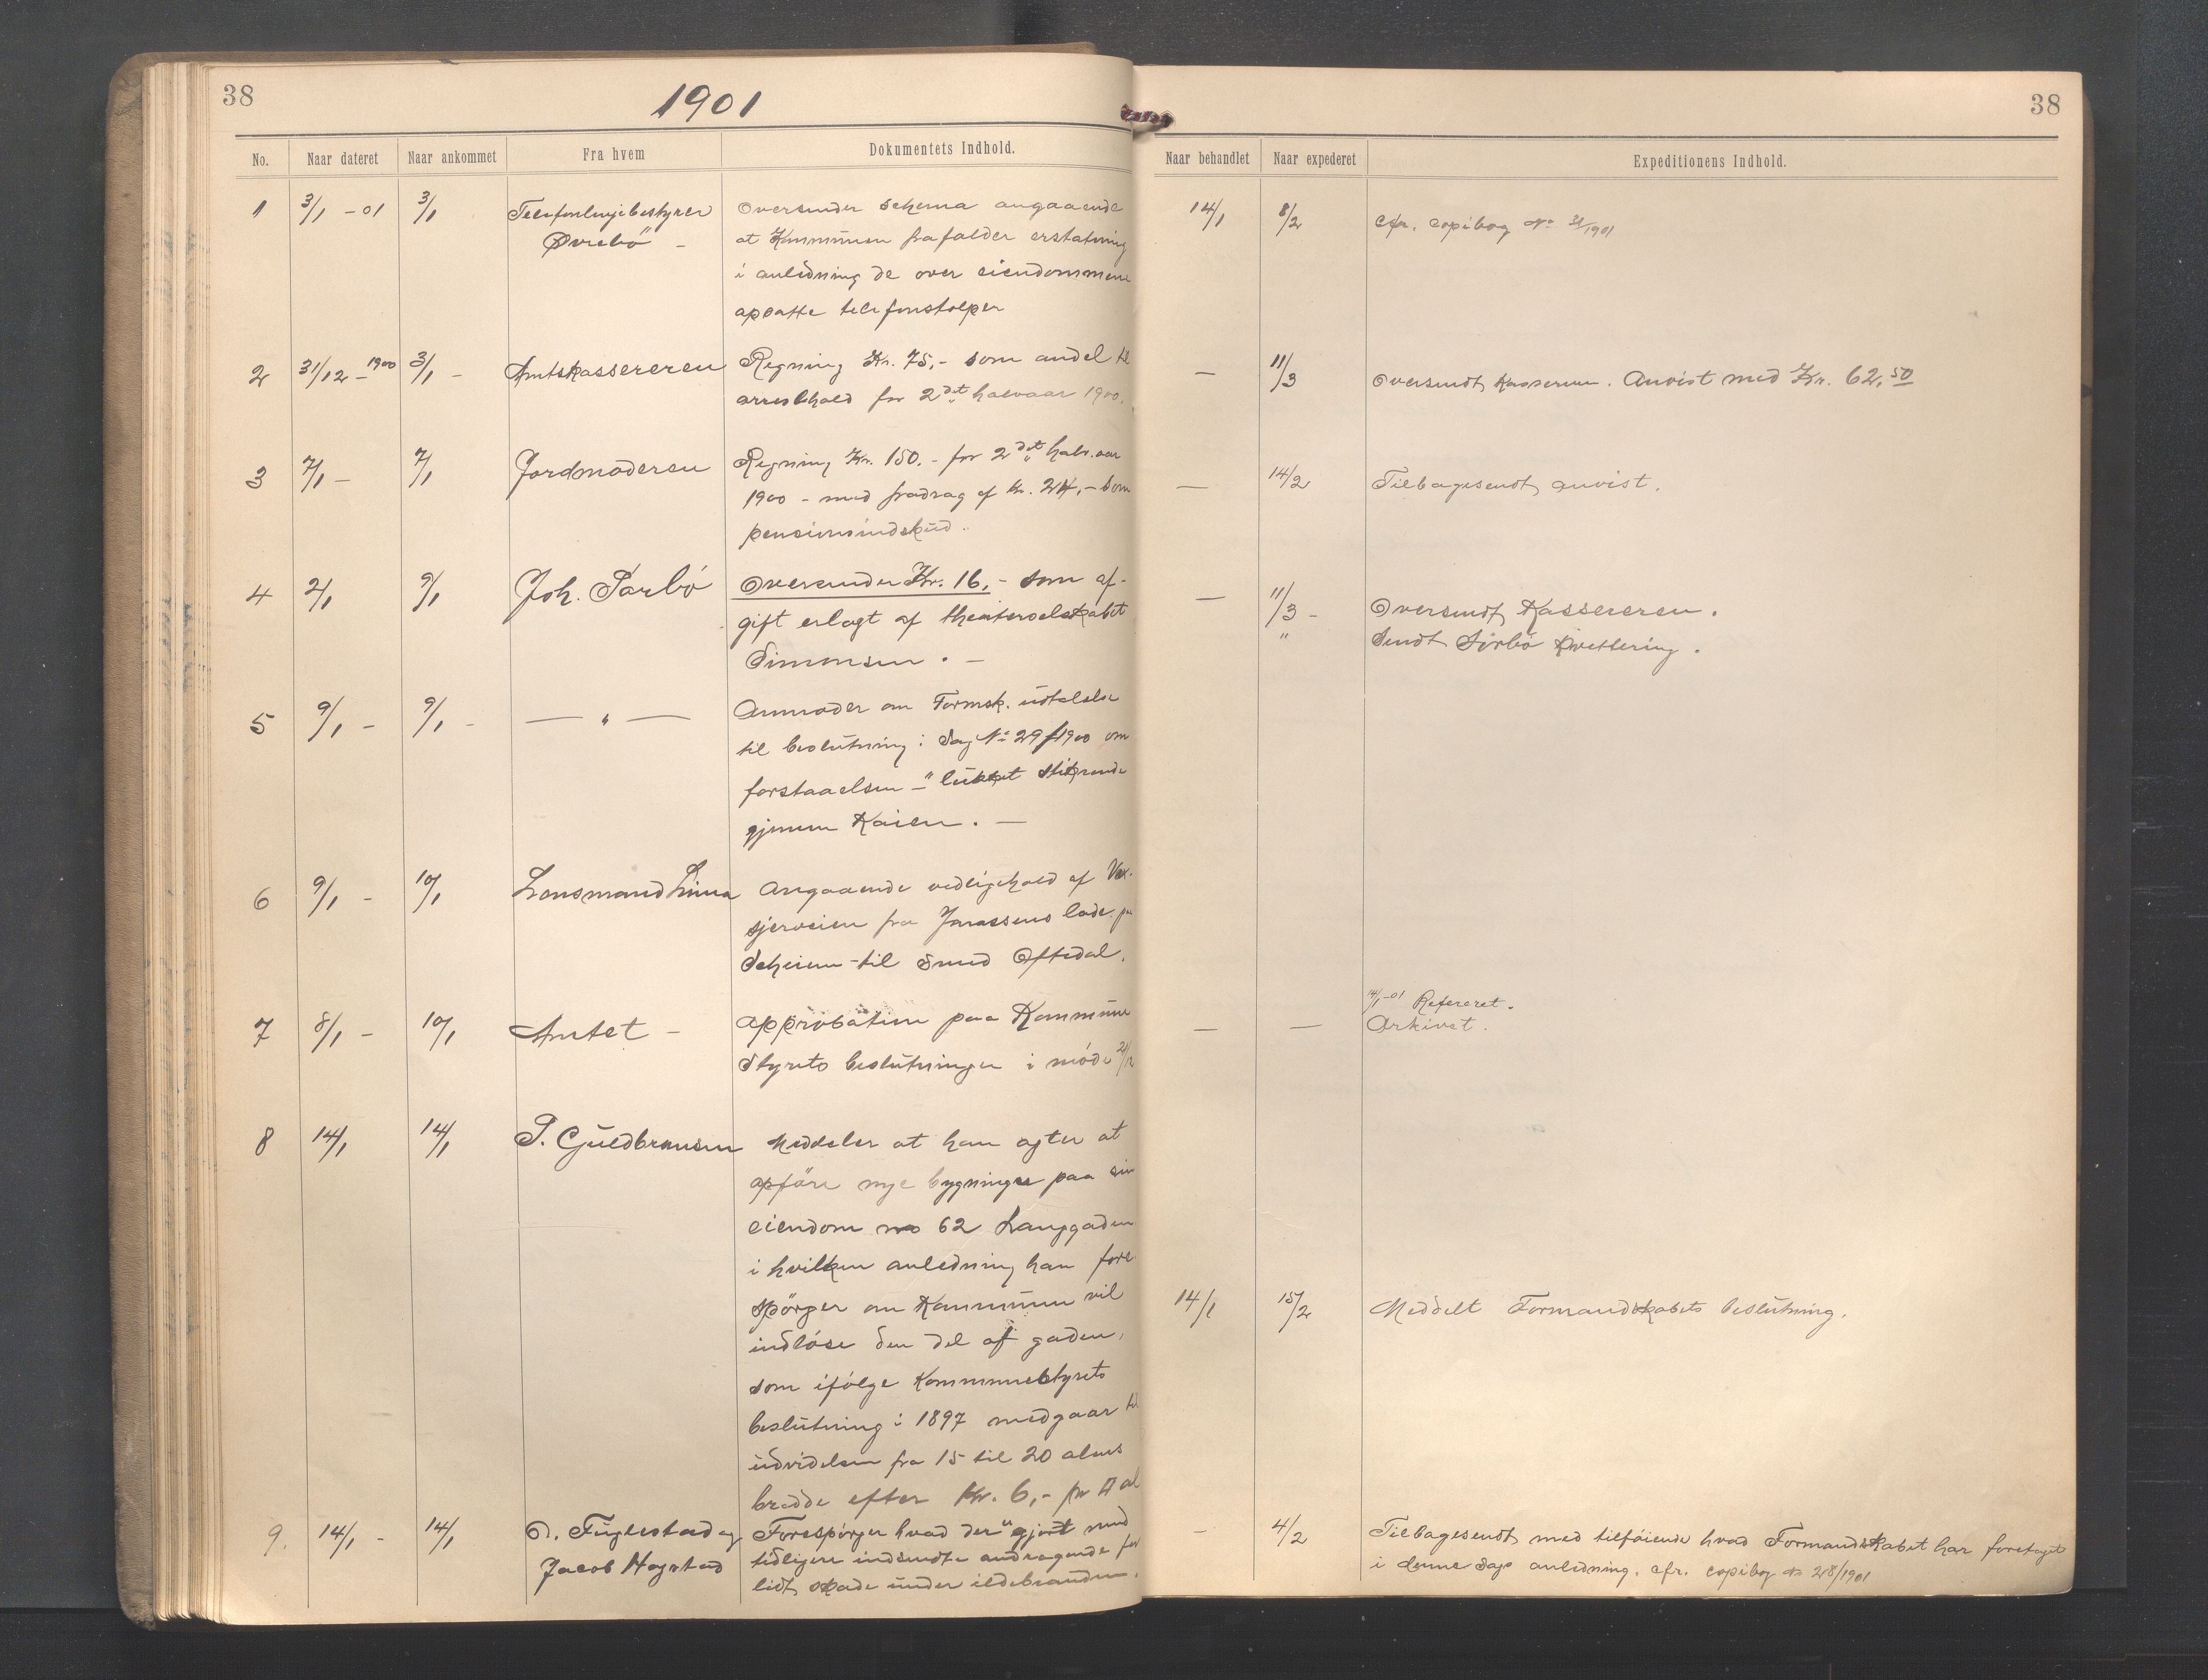 38
1901
No. Naar dateret Naar ankommet Fra hvem Dokumentets Indhold.
1 3/1 -01 3/1 Telefonlinjebestyrer Oversender schema angaaende
Øvrebö - at Kommunen frafalder erstatning
i anledning de over eiendommene
opsatte telefonstolper
2 31/12 - 1900 3/1 - Amtskassereren Regning Kr. 75,- som andel til
arresthold for 2det halvaar 1900.
3 7/1 - 7/1 Jordmoderen Regning Kr. 150.- for 2det halv.aar
1900 - med fradrag af Kr. 24,- som
pensionsindskud.
4 2/1 9/1 Joh. Sørbö Oversender Kr. 16,- som af-
gift erlagt af theaterselskabet
Simonsen. -
5 9/1 - 9/1 - — " — Anmoder om Formsk. udtalelse
til beslutning i Sag No 29/1900 om
forstaaelsen - " lukket stikrende
gjennem Kaien. -
6 9/1 - 10/1 Lensmand Lima Angaaende vedligehold af
sjerveien fra Jonassens lade paa
Scheien til Smed Oftedal.
7 8/1 - 10/1 Amtet - Approbation paa Kommune
Styrets beslutninger i møde
8 14/1 14/1 P. Guldbransen Meddeler at han agter at
opføre nye bygninger paa sin
eiendom no 62 Langgaden
i hvilken anledning han fore
spørger om Kommunen vil
indløse den del af gaden,
som ifølge Kommunestyrets
beslutning i 1897 medgaar til
udvidelsen fra 15 til 20 alens
bredde efter Kr. 6,- pr □ al
9. 14/1 - 14/1 O. Fuglestad og Forespørger hvad der er gjort med
Jacob Hognstad tidligere indsendte andragende for
lidt skade under ildebranden.
38
Naar behandlet Naar expederet Expeditionens Indhold.
14/1 8/2 Cfr. copibog No 21/1901
— 11/3 Oversendt Kassereren. Anvist med Kr. 62,50
— 14/2 Tilbagesendt anvist.
— 11/3 - Oversendt Kassereren.
" Sendt Sörbö kvittering.
14/1-01 Refereret.
— — Arkivet.
14/1 15/2 Meddelt Formandskabets beslutning.
- 4/2 Tilbagesendt med tilføiende hvad Formandskabet har foretaget
i denne Sags anledning. cfr. copibog No 218/1901